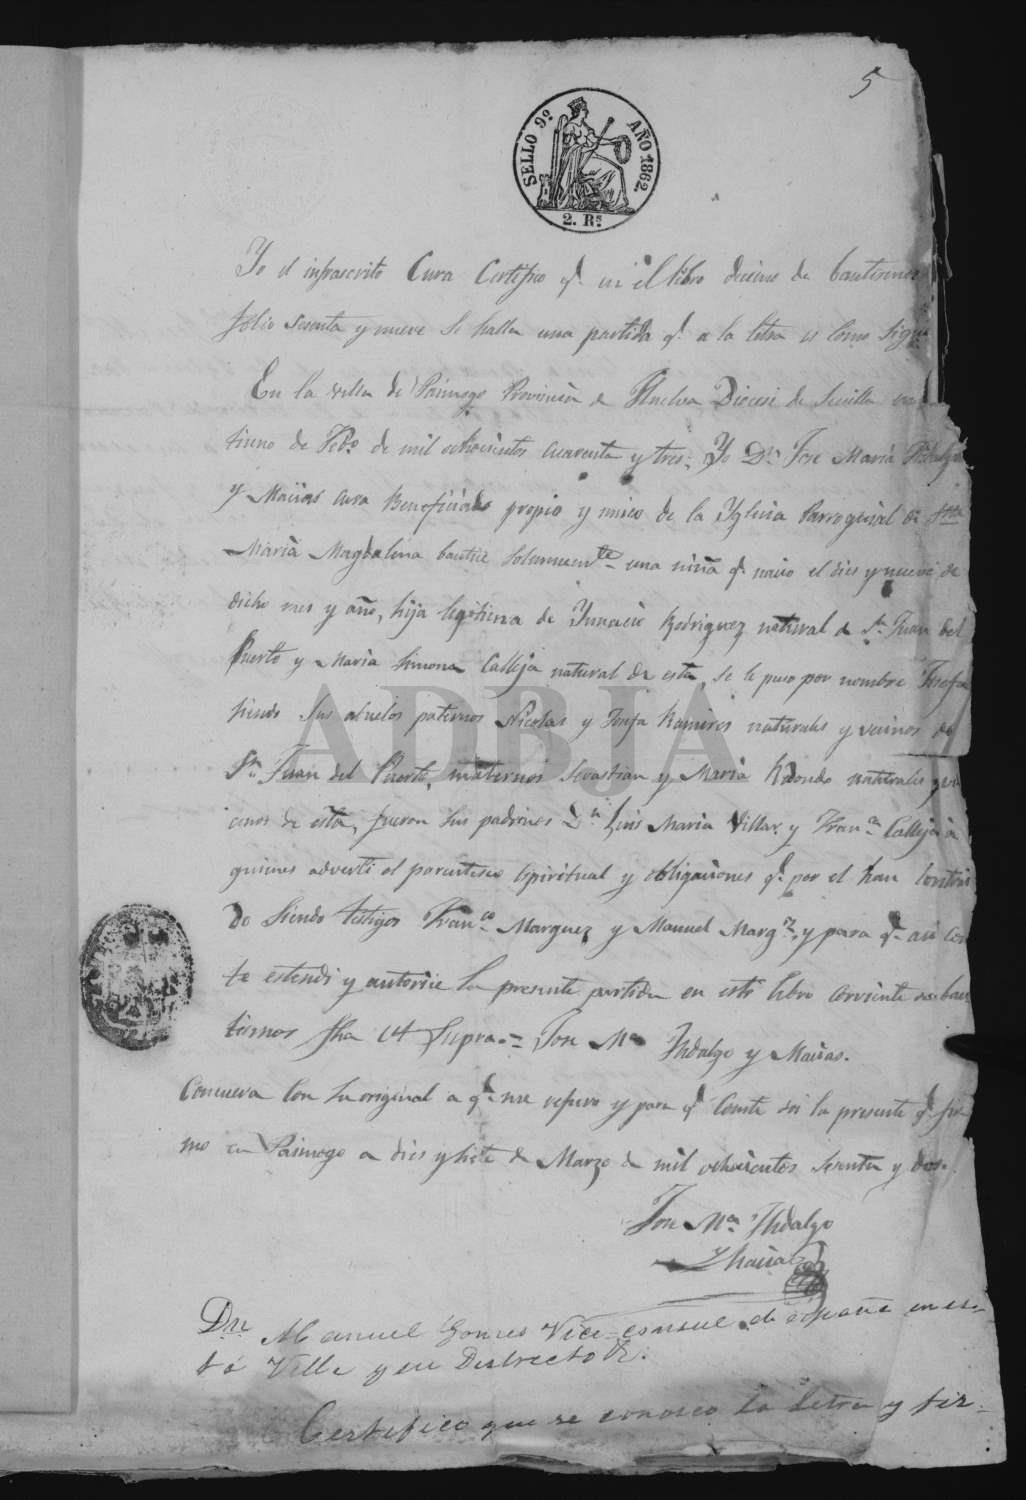 5
SELLO 9º AÑO 1862.
2. Rs
Yo el infraescrito Cura Certifico q.e en el libro decimo de bautismos
folio sesenta y nueve se halla una partida q.e a la letra es como sigue
En la villa de Paimogo Provincia de Huelva Diocesi de Sevilla en
tiuno de Febo. de mil ochocientos cuarenta y tres= Yo Dn. Jose Maria Hidalgo
y Macias cura Beneficiado propio y unico de la Yglecia Parroquial de Sta
Maria Magdalena bautice solemnemte. una niña q.e nacio el dies y nueve de
dicho mes y año, hija legitima de Ygnacio Rodriguez natural de Sn. Juan del
Puerto y Maria Simona Calleja natural de esta, se le puso por nombre Josefa
siendo sus abuelos paternos Nicolas y Josefa Ramires naturales y vecinos de
Sn. Juan del Puerto, maternos Sevastian y Maria Redondo naturales y ve
cinos de esta, fueron sus padrinos Dn. Luis Maria Villar y Franca. Calleja a
quienes adverti el parentesco Espiritual y obligaciones q.e por el han contrai
do siendo testigos Franco. Marquez y Manuel Marqz. y para q.e asi cons
te estendi y autorice la presente partida en este libro corriente de bau
tismos fha ut supra.= Jose Ma. Hidalgo y Macias.
Concuerda con su original a q.e me refiero y para q.e conste doi la presente q.e fir
mo en Paimogo a dies y siete de Marzo de mil ochocientos sesenta y dos.
Jose Ma. Hidalgo
y Macias
Dn. Manuel Gomes Vice-consul de españa en es-
ta Villa y su Destrecto &.
Certifico que se conosco la letra y fir-
ADBJA